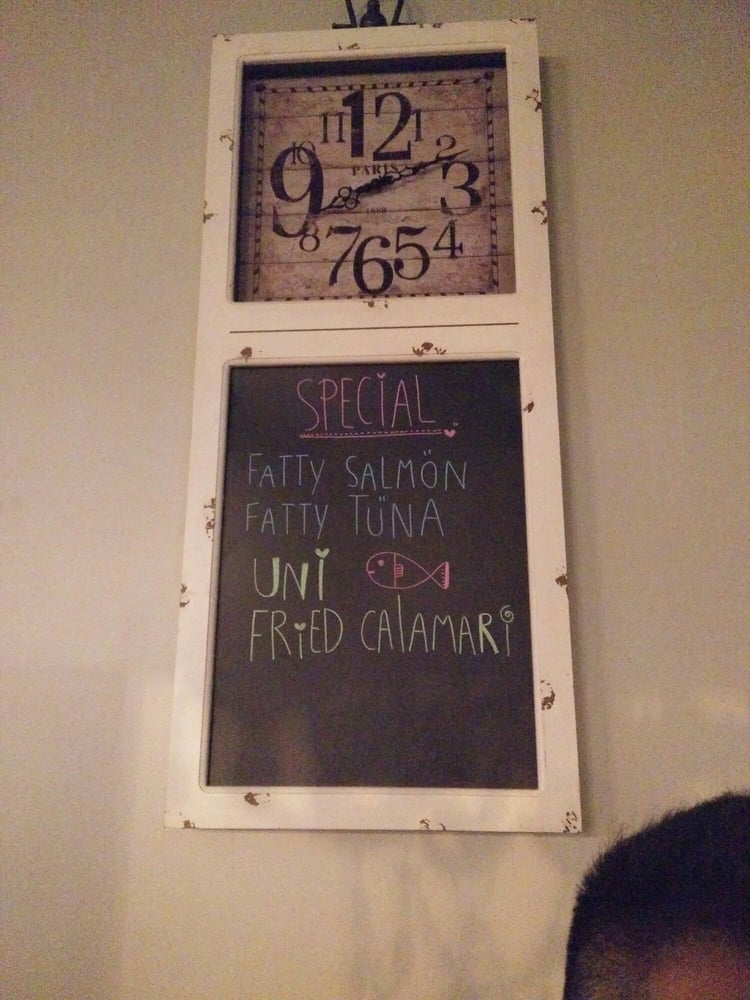 11 12 1
10 2
PARIS
9 3
8 4
7 6 5
SPECiAL
FATTY SALMÖN
FATTY TÜNA
UNi
FRiED CAlAMARi